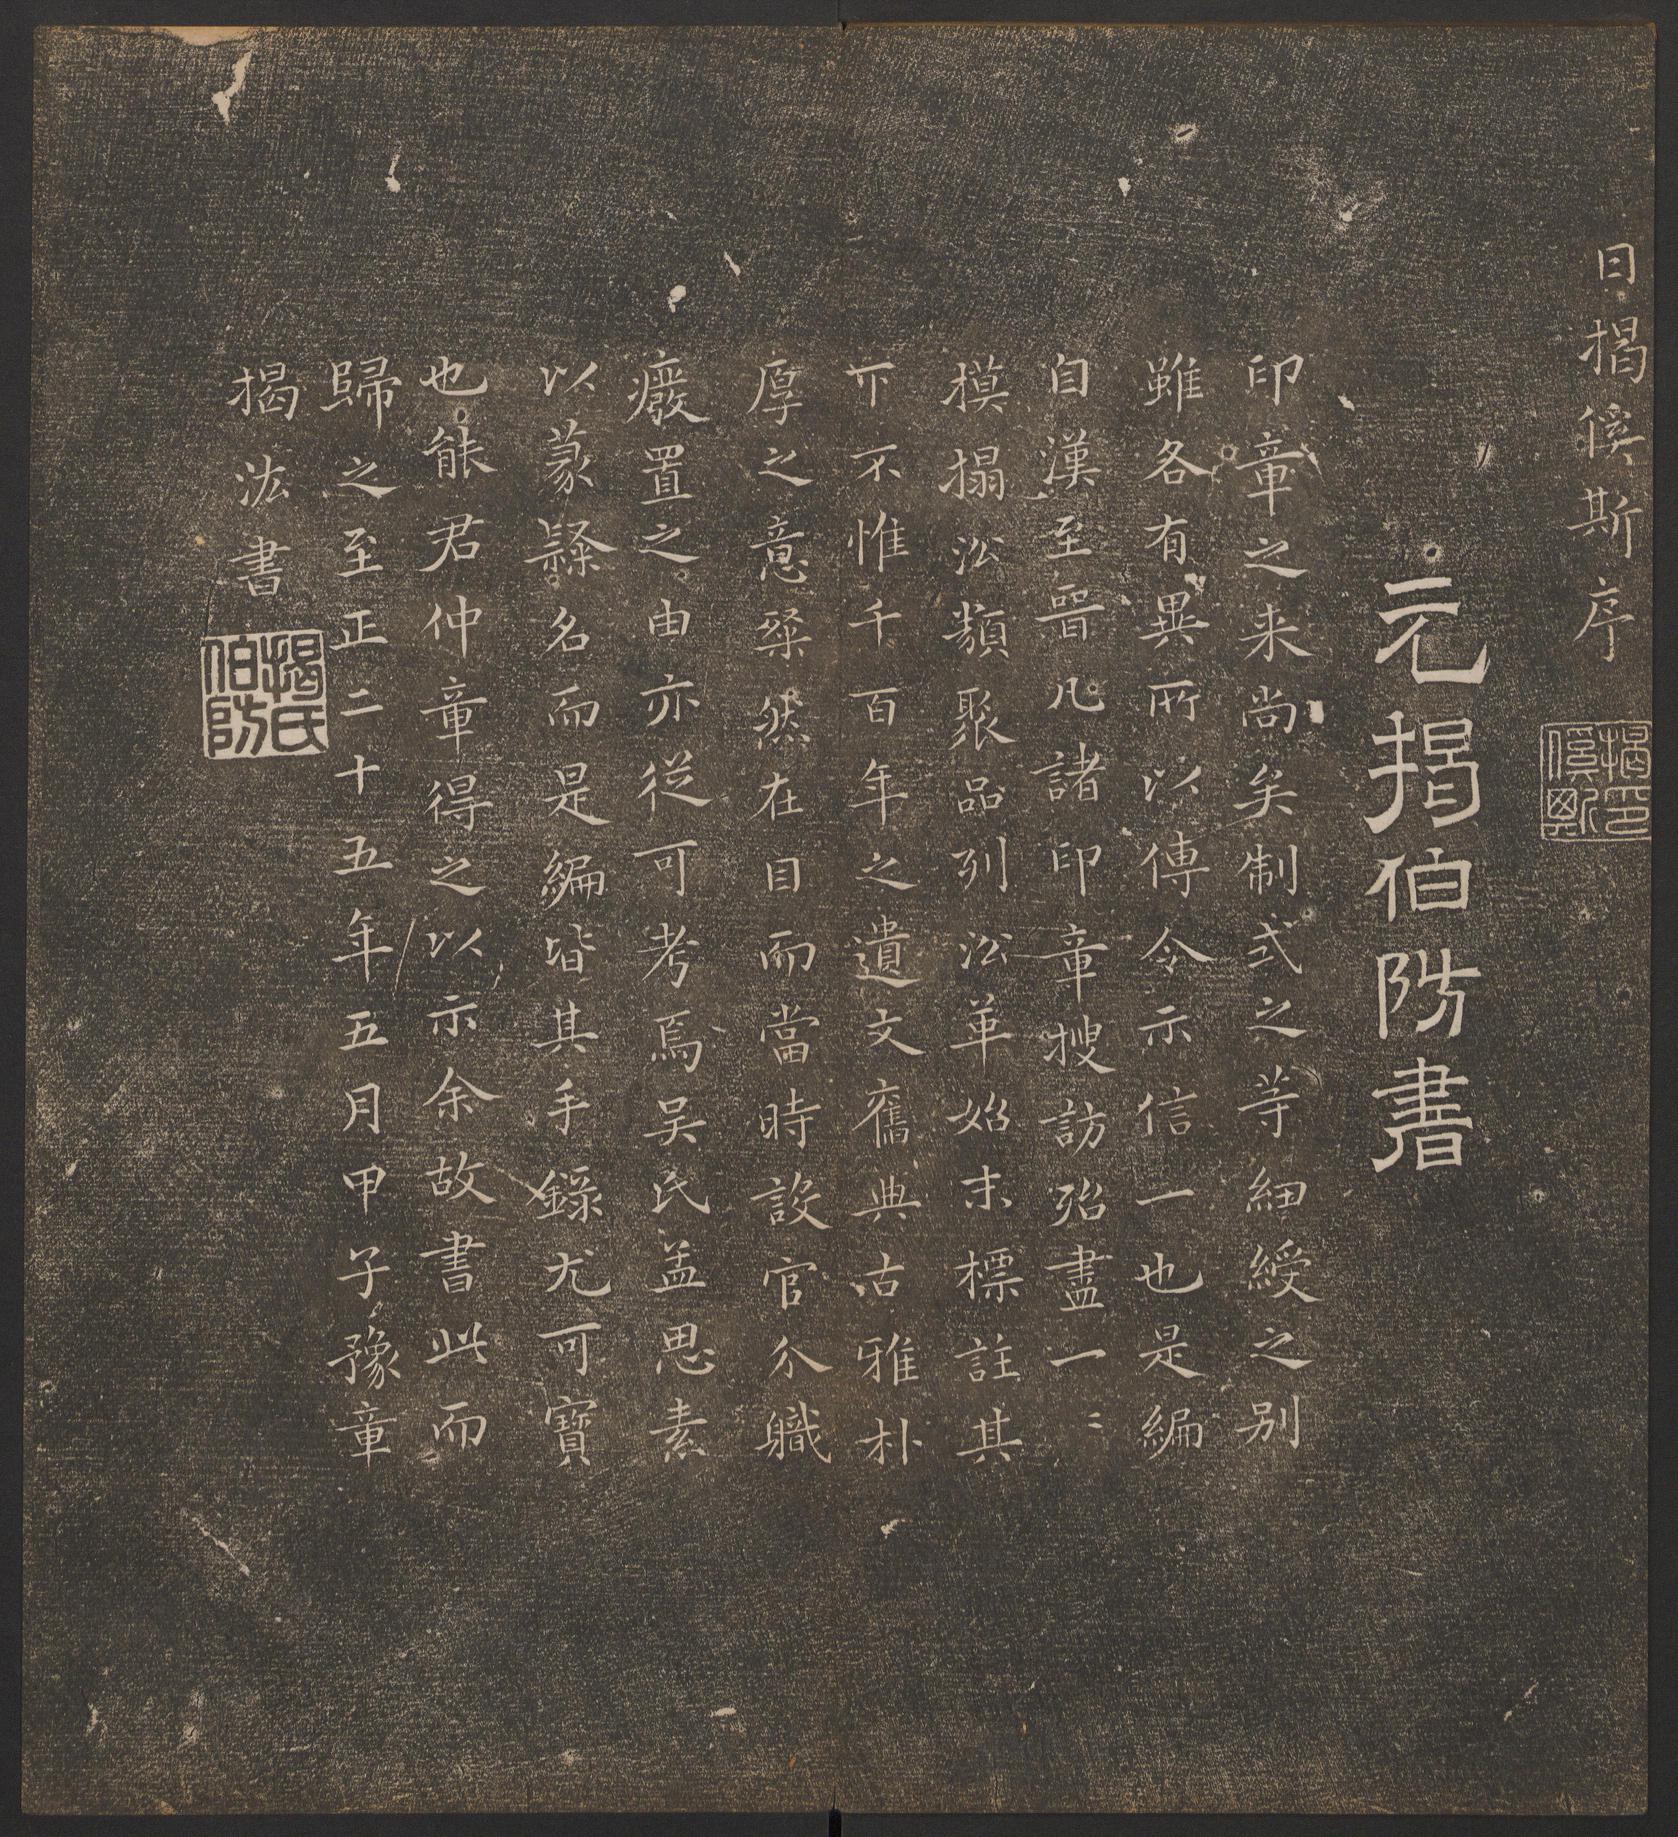 日揭傒斯序
揭傒斯印
元揭伯防書
印章之来尚矣制式之等紐綬之别
雖各有異所以傳令示信一也是編
自漢至晉凡諸印章搜訪殆盡一〻
摸搨㳂類聚品列㳂革始末標註其
下不惟千百年之遺文舊典古雅朴
厚之意粲然在目而當時設官分職
癈置之由亦従可考焉吴氏孟思素
以篆隸名而是編皆其手錄尤可寶
也能君仲章得之以示余故書此而
歸之至正二十五年五月甲子豫章
揭汯書
揭氏伯防